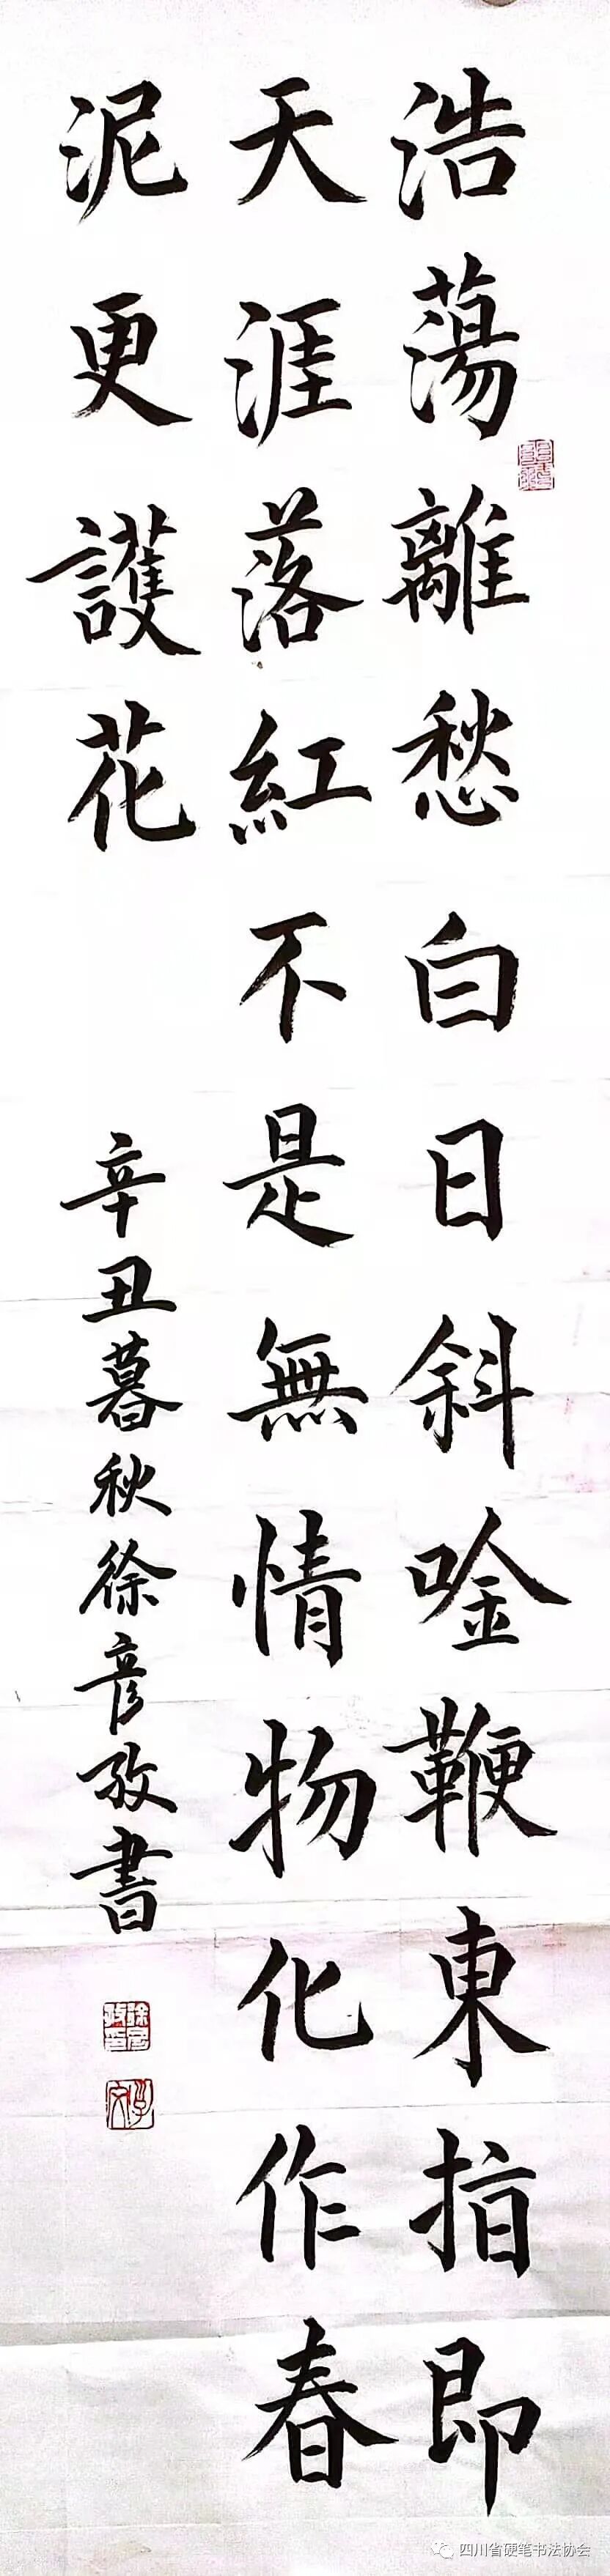 浩蕩離愁白日斜唫鞭東指即
天涯落紅不是無情物化作春
泥更護花
辛丑暮秋徐彦孜書
四川省硬笔书法协会